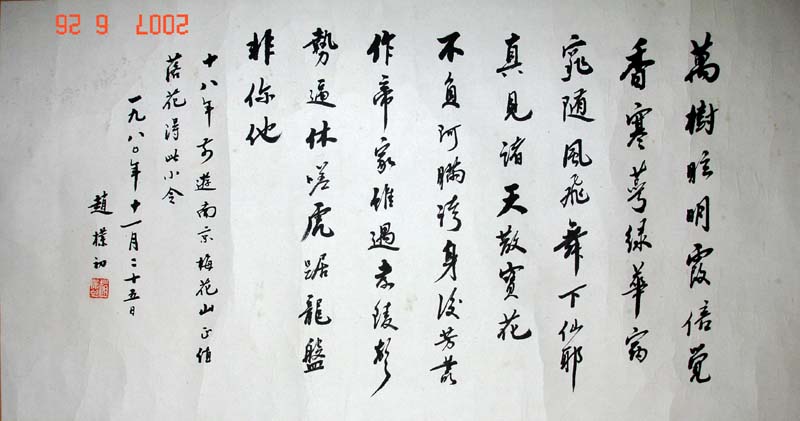 萬樹眩明霞倍觉
香寒萼绿華窈
窕随風飛舞下仙耶
真見諸天散寶花
不負阿瞞誇身後芳叢
作帝家雖過孝陵聲
勢逼休嗟虎踞龍盤
非你他
十八年前遊南京梅花山正值
落花得此小令
一九八〇年十一月二十五日
趙樸初
2007 6 26